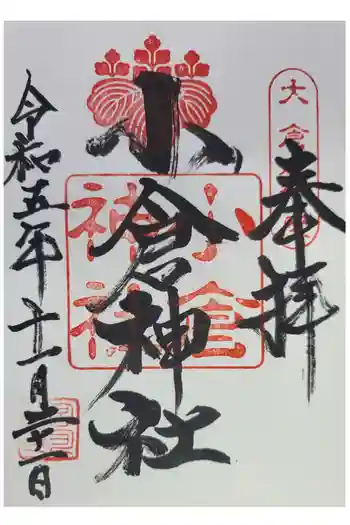 奉拝
大倉
小倉神社
小倉
神社
令和五年十一月二十一日